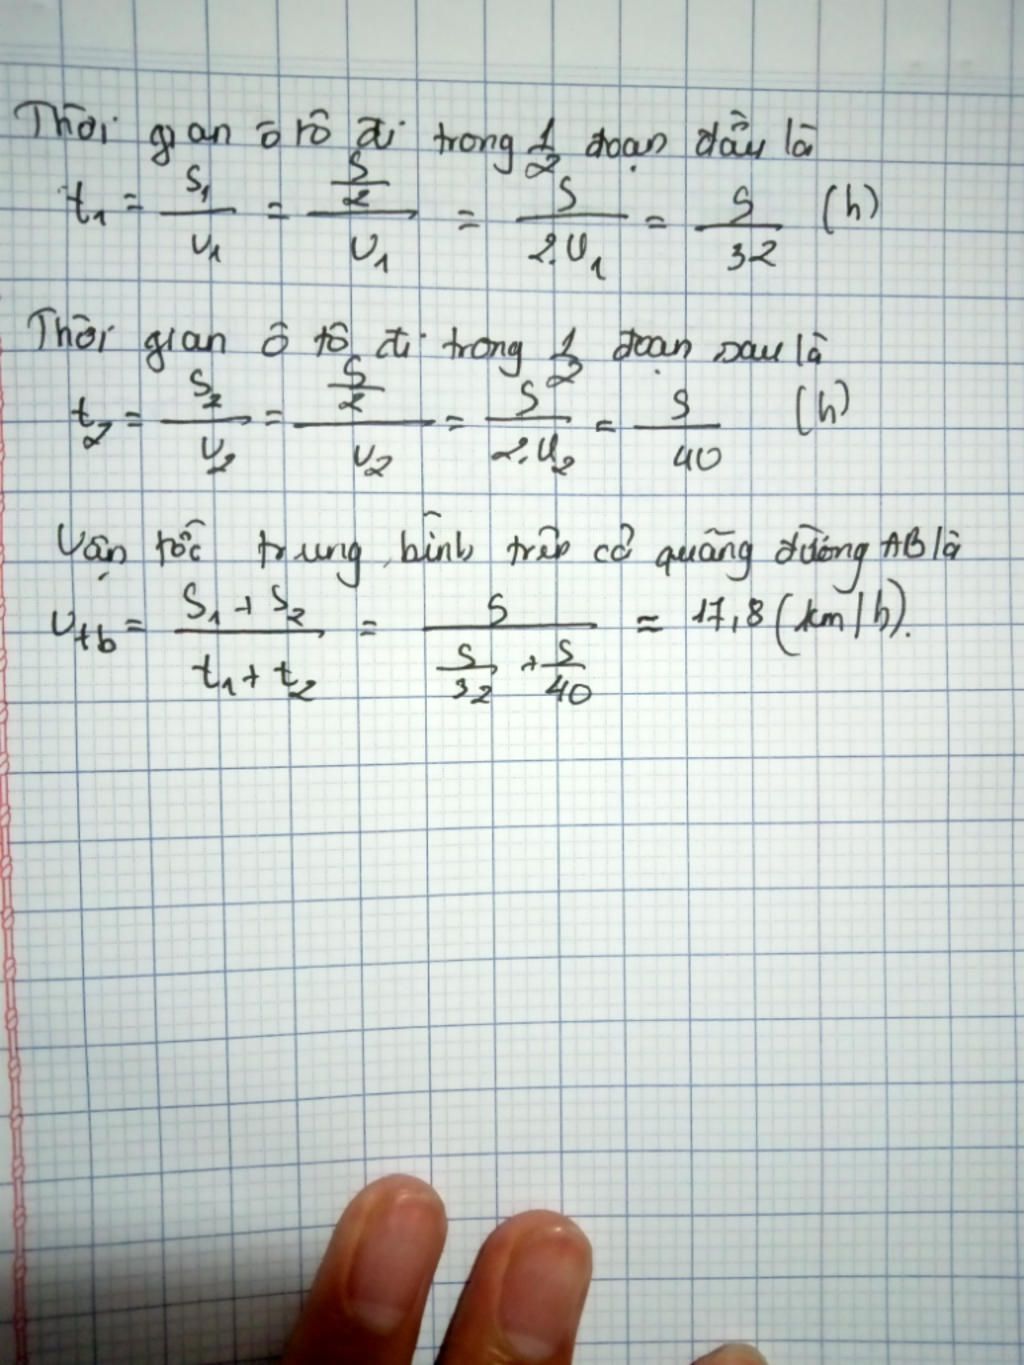 Thời gian ô tô đi trong 1/2 đoạn đầu là
t₁ = S₁/v₁ = (S/2)/v₁ = S/(2.v₁) = S/32 (h)
Thời gian ô tô đi trong 1/2 đoạn sau là
t₂ = S₂/v₂ = (S/2)/v₂ = S/(2.v₂) = S/40 (h)
Vận tốc trung bình trên cả quãng đường AB là
v_tb = (S₁ + S₂)/(t₁ + t₂) = S/(S/32 + S/40) ≈ 17,8 (km/h).